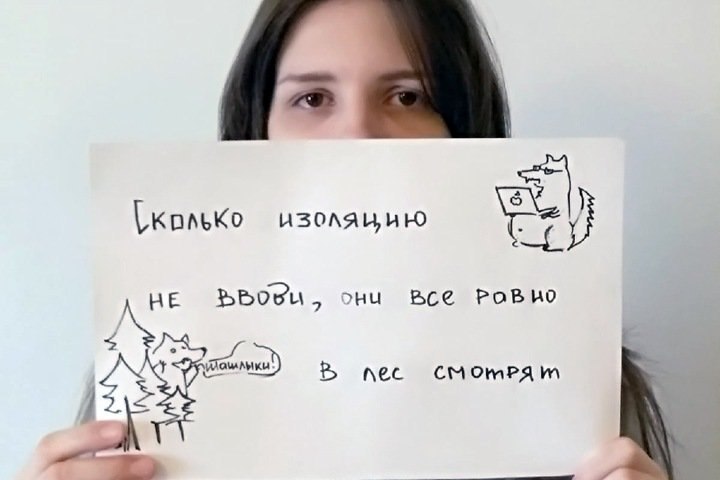 Сколько изоляцию
не вводи, они все равно
шашлыки!
в лес смотрят